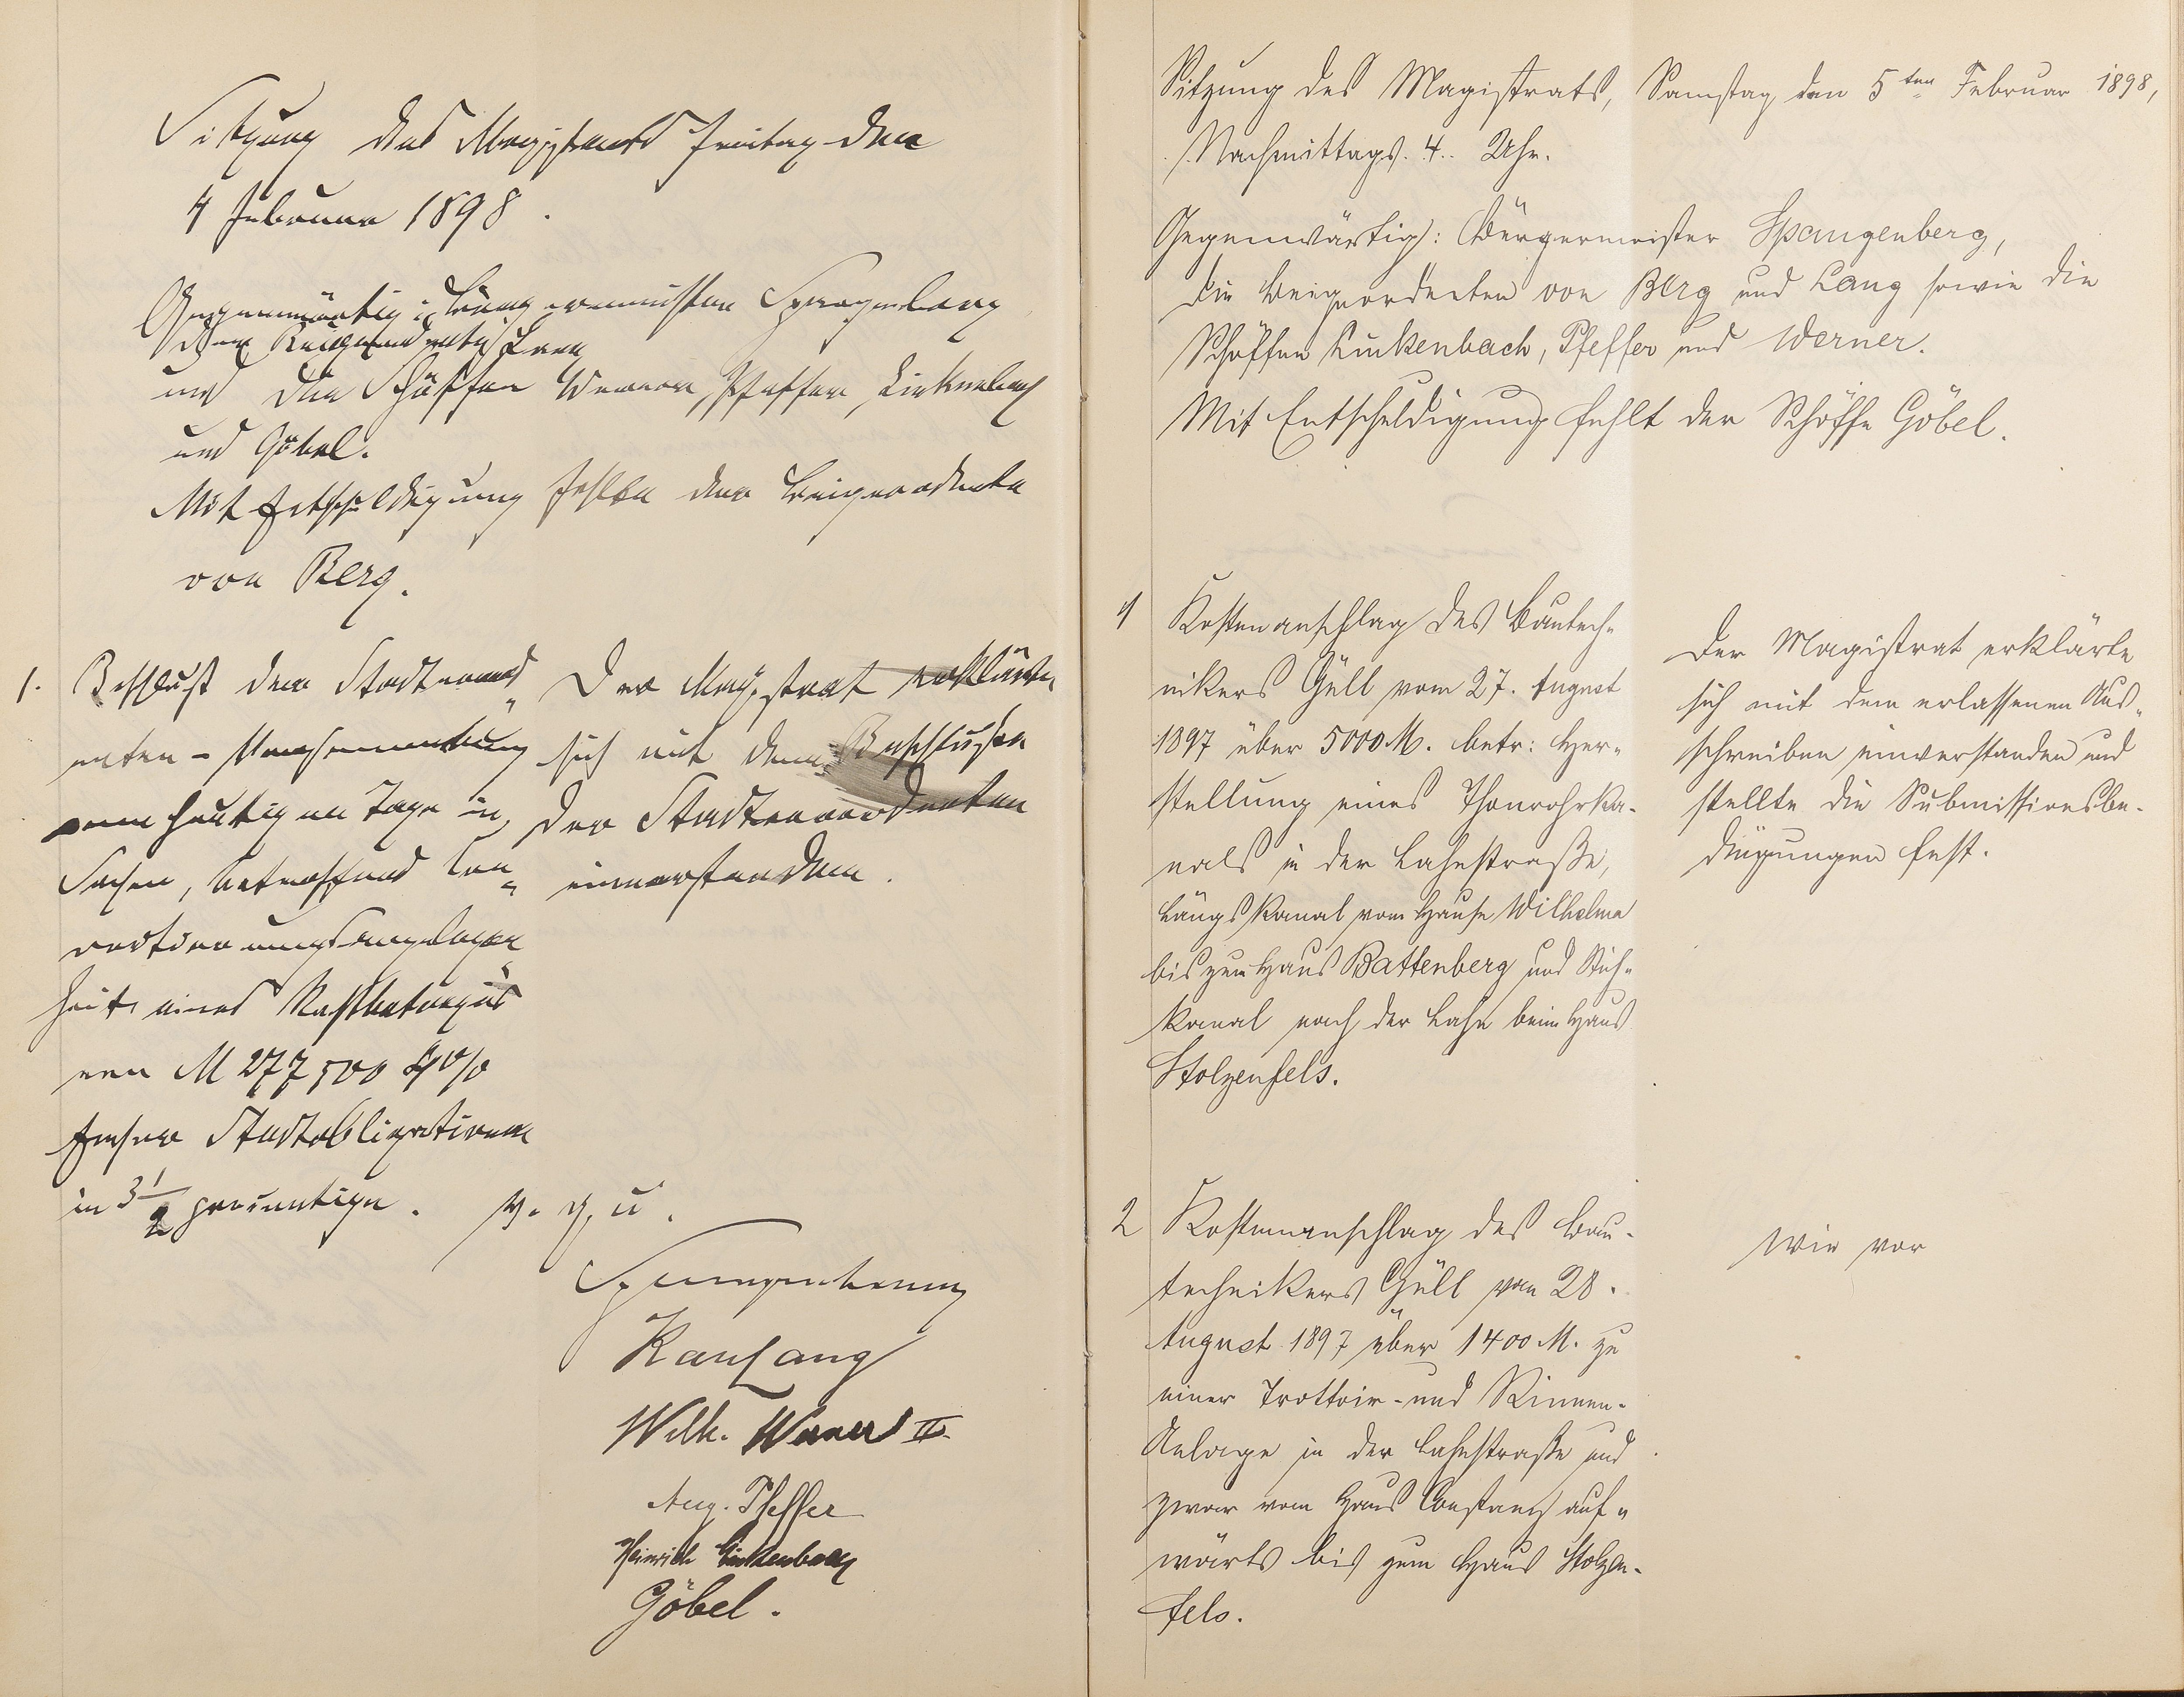 Sitzung des Magistrats Freitag den
4 Februar 1898.
Gegenwärtig: Bürgermeister Spangenberg
der Beigeordnete Lang
und die Schöffen Werner, Pfeffer, Linkenbach
und Göbel.
Mit Entschuldigung fehlte der Beigeordnete
von Berg.
1. Beschluß der Stadtverord„
neten-Versammlung
vom heutigen Tage in
Sachen, betreffend Con„
vertierungsangelegen„
heit eines Restbetrages
von M 277500 4%
Emser Stadtobligationen
in 3 1/2 procentige.
Der Magistrat erklärte
sich mit dem Beschlusse
der Stadtverordneten
einverstanden.
v. g. u.
Spangenberg
Karl Lang
Wilh. Werner II
Aug. Pfeffer
Heinrich Linkenbach
Göbel.
Sitzung des Magistrats, Samstag den 5ten Februar 1898,
Nachmittags 4 Uhr.
Gegenwärtig: Bürgermeister Spangenberg,
die Beigeordneten von Berg und Lang sowie die
Schöffen Linkenbach, Pfeffer und Werner.
Mit Entschuldigung fehlt der Schöffe Göbel.
1 Kostenanschlag des Bautech„
nikers Güll vom 27. August
1897 über 5000 M. betr: Her„
stellung eines Thonrohrka-
nals in der Lahnstraße,
Längskanal vom Hause Wilhelma
bis zum Haus Battenberg und Stich„
kanal nach der Lahn beim Haus
Stolzenfels.
Der Magistrat erklärte
sich mit dem erlassenen Aus„
schreiben einverstanden und
stellte die Submissionsbe-
dingungen fest.
2 Kostenanschlag des Bau-
technikers Güll vom 28.
August 1897 über 1400 M. zu
einer Trottoir- und Rinnen-
Anlage in der Lahnstraße und
zwar vom Haus Constanz auf„
wärts bis zum Haus Stolzen-
fels.
Wie vor